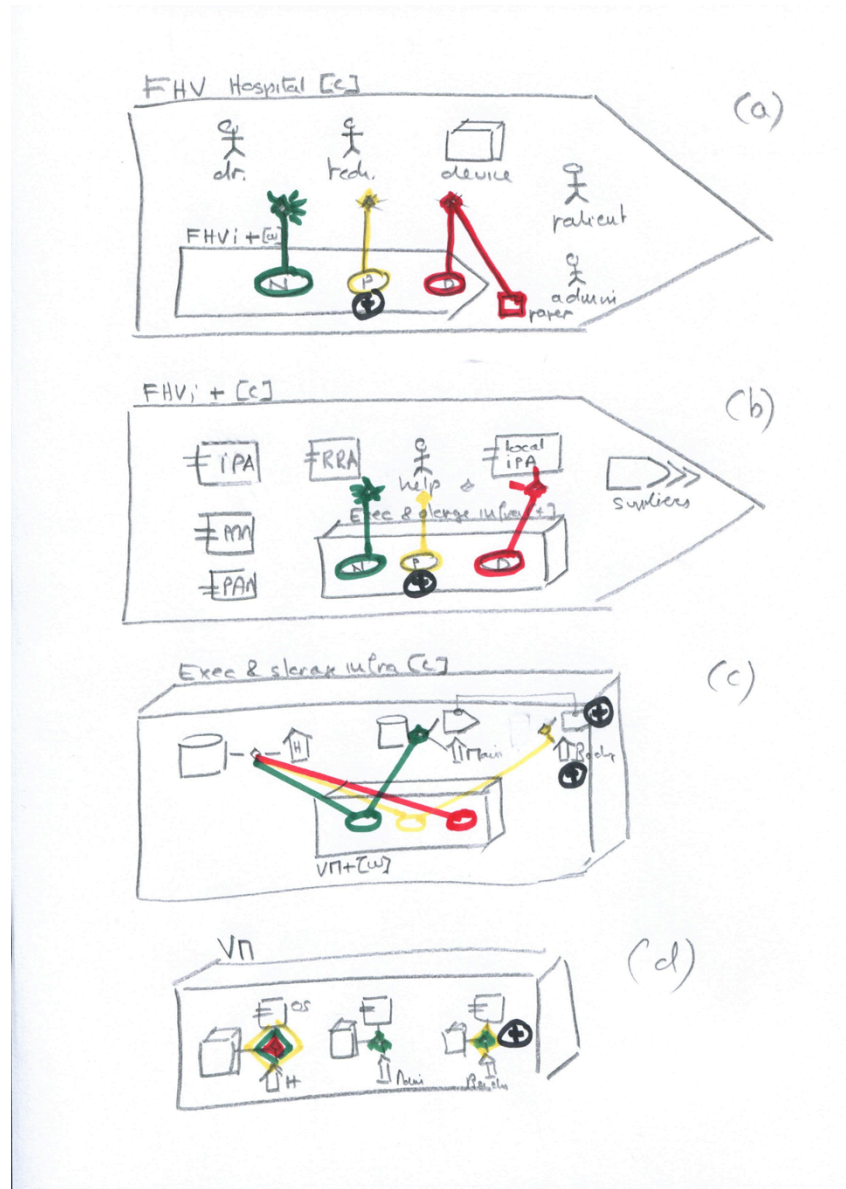 FHV Hospital [c]
(a)
dr.
tech.
device
patient
FHVi + [w]
N
P
D
admin
paper
FHVi + [c]
(b)
IPA
RRA
help
local
IPA
suppliers
Exec & storage infra [+]
PAN
N
P
D
Exec & storage infra [c]
(c)
H
Main
VM+[w]
VM
(d)
OS
H
Main